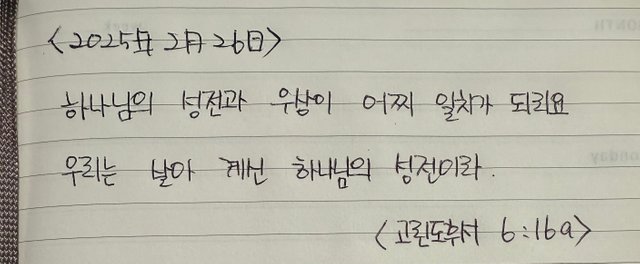 <2025年 2月 26日>
하나님의 성전과 우상이 어찌 일치가 되리요
우리는 살아 계신 하나님의 성전이라.
<고린도후서 6:16a>